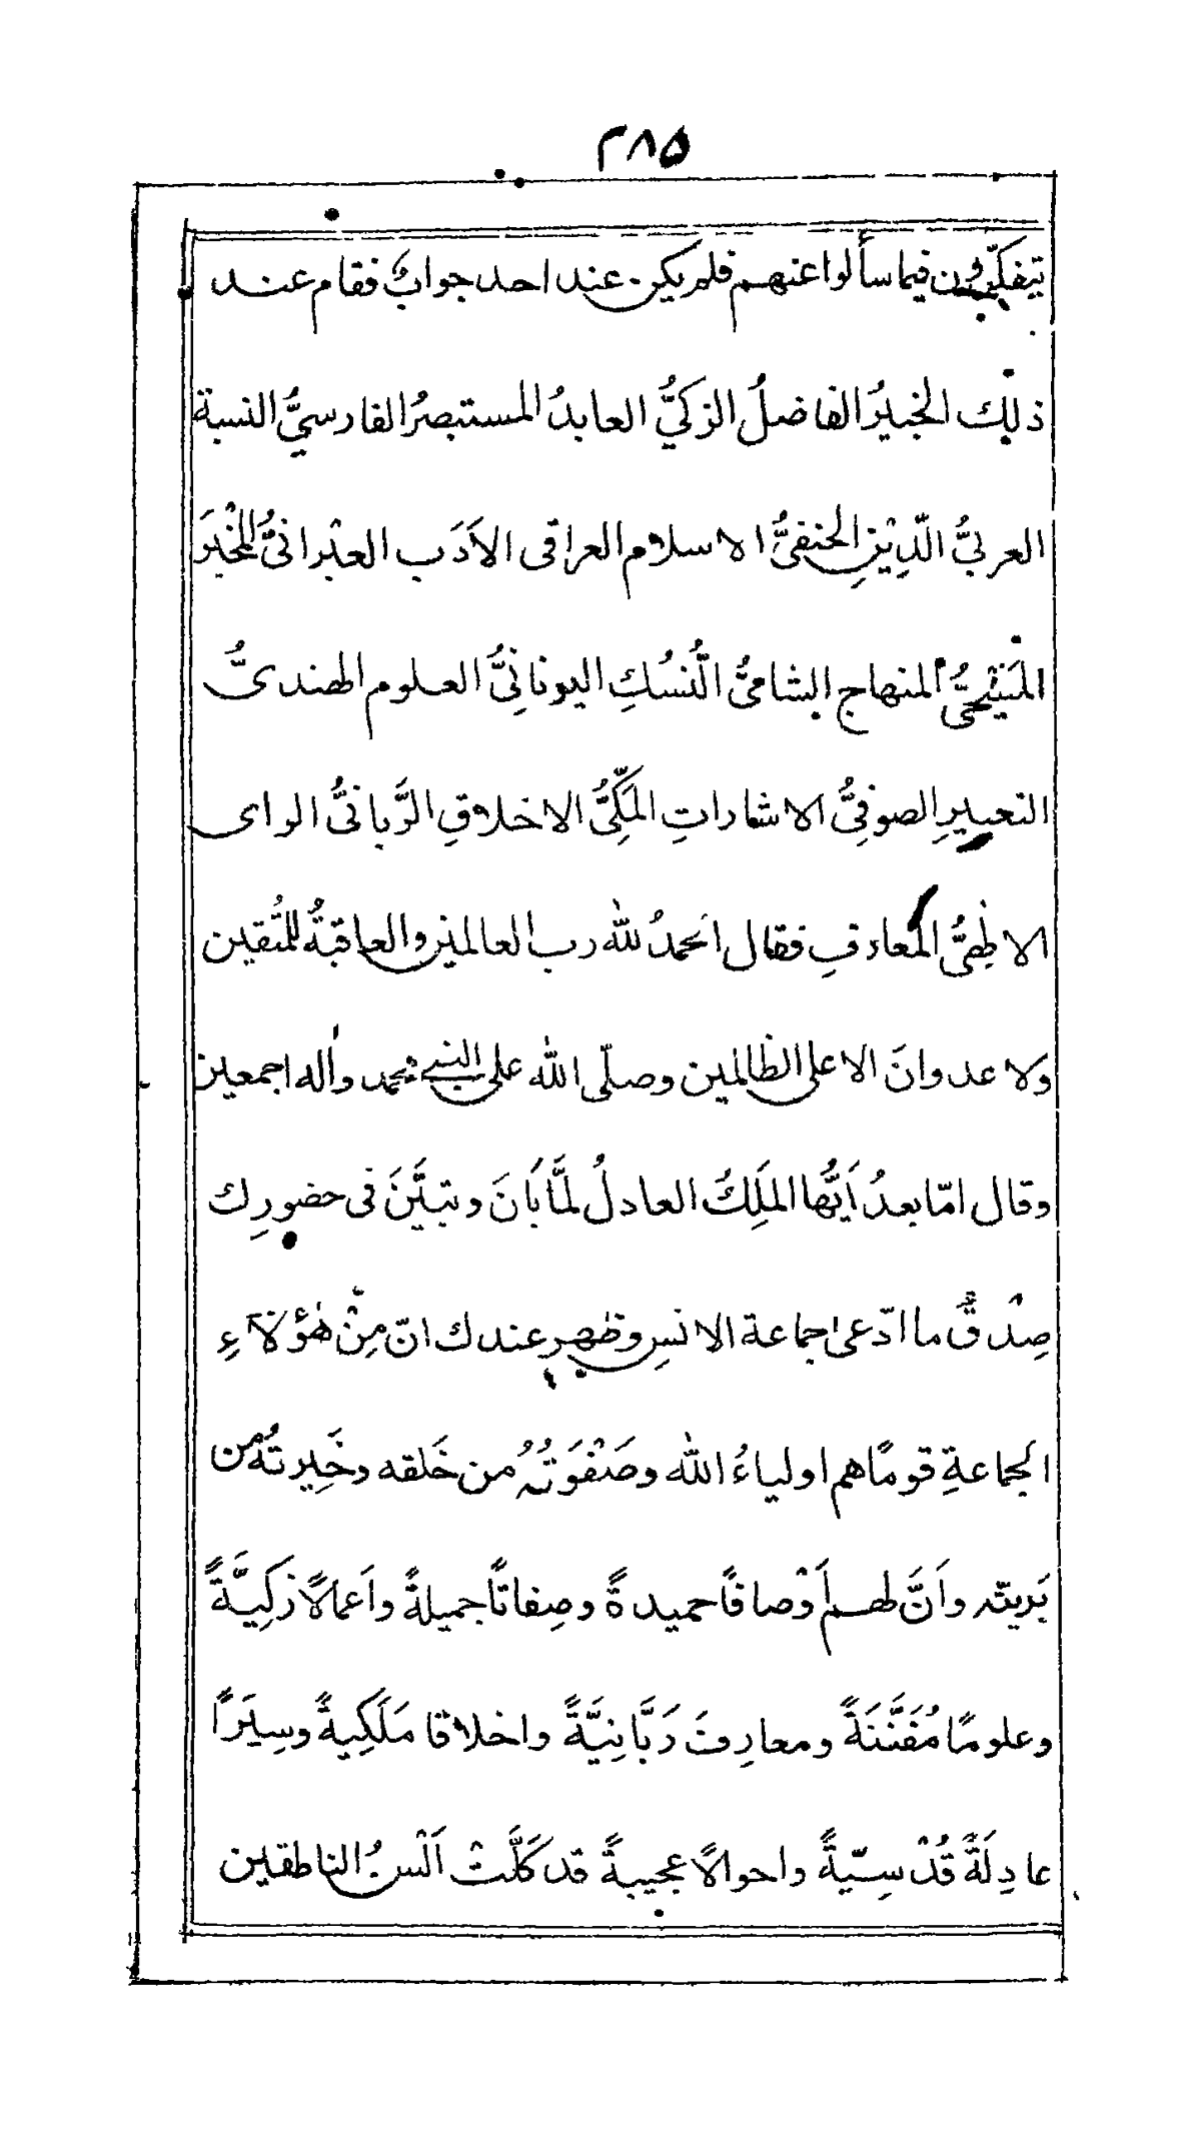 ٢٨٥
يتفكّرون فيما سألوا عنهم فلم يكن عند احد جوابٌ فقام عند
ذلك الخبيرُ الفاضلُ الزكيُّ العابدُ المستبصرُ الفارسيُّ النسبة
العربيُّ الدِّيْنِ الحنفيُّ الاسلام العراقى الاَدَب العبْرانىُّ المَخْبَر
المسيحيُّ المنهاج الشامىُّ النُّسُكِ اليونانِىُّ العلوم الهندىُّ
التعبيرِ الصوفِىُّ الاشاراتِ المَلَكِىُّ الاخلاقِ الرَّبانىُّ الراى
الالٰهىُّ المعارفِ فقال الحمدُ لله رب العالمين والعاقبةُ للمُتقين
ولا عدوانَ الا على الظالمين وصلّى الله على النبى محمد واٰله اجمعين
وقال امّا بعدُ اَيُّها المَلِكُ العادلُ لمَّا بَانَ وتبيَّنَ فى حضورِك
صِدْقُ ما ادّعىٰ جماعة الانسِ وظهر عندك انّ مِنْ هٰؤلآءِ
الجماعةِ قومًا هم اولياءُ الله وصَفْوَتُهُ من خَلقه وخَيِرتُهُ من
بَريته واَنَّ لهم اَوْصافًا حميدةً وصِفاتًا جميلةً واَعمالًا زكِيَّةً
وعلومًا مُفَنَّنَةً ومعارِفَ رَبَّانِيَّةً واخلاقا مَلَكِيةً وسِيَرًا
عادِلَةً قُدْسِيّةً واحوالًا عجيبةً قد كَلَّتْ اَلْسُنُ الناطقين